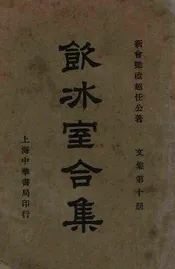 新會梁啟超任公著
文集第十册
飲冰室合集
上海中華書局印行